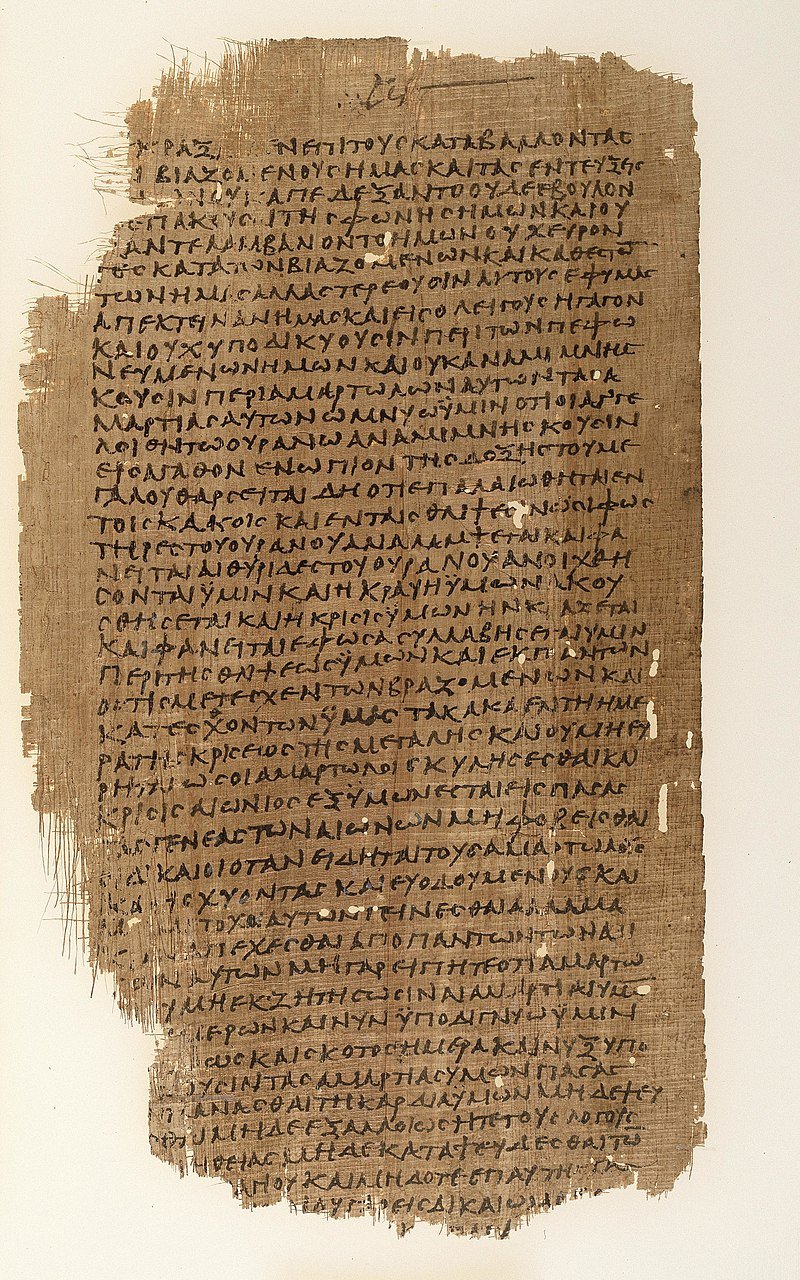 ΝΕΠΙΤΟΥϹΚΑΤΑΒΑΛΛΟΝΤΑϹ
ΒΙΑΖΟΜΕΝΟΥϹΗΜΑϹΚΑΙΤΑϹΕΝΤΕΥΞΕΙϹ
ΑΠΕΔΕΞΑΝΤΟΟΥΔΕΕΒΟΥΛΟΝ
ΤΗϹΦΩΝΗϹΗΜΩΝΚΑΙΟΥ
ΑΝΤΕΛΑΜΒΑΝΟΝΤΟΗΜΩΝΟΥΧΕΥΡΟΝ
ΚΑΤΑΤΩΝΒΙΑΖΟΜΕΝΩΝΚΑΙΚΑΤΕϹΘ
ΤΩΝΗΜΑϹΑΛΛΑϹΤΕΡΕΟΥϹΙΝΑΥΤΟΥϹΕΦΥΜΑϹ
ΑΠΕΚΤΕΙΝΑΝΗΜΑϹΚΑΙΕΙϹΟΛΕΙΓΟΥϹΗΓΑΓΟΝ
ΚΑΙΟΥΧΥΠΟΔΙΚΥΟΥϹΙΝΠΕΡΙΤΩΝΠΕΦΩ
ΝΕΥΜΕΝΩΝΗΜΩΝΚΑΙΟΥΚΑΝΑΜΙΜΝΗϹ
ΚΟΥϹΙΝΠΕΡΙΑΜΑΡΤΩΛΩΝΑΥΤΩΝΤΑϹΑ
ΜΑΡΤΙΑϹΑΥΤΩΝΩΜΝΥΩΫΜΙΝΟΤΙΟΙΑΓΓΕ
ΛΟΙΕΝΤΩΟΥΡΑΝΩΑΝΑΜΙΜΝΗϹΚΟΥϹΙΝ
ΕΙϹΑΓΑΘΟΝΕΝΩΠΙΟΝΤΗϹΔΟΞΗϹΤΟΥΜΕ
ΓΑΛΟΥΘΑΡϹΕΙΤΑΙΔΗΟΤΙΕΠΑΛΑΙΩΘΗΤΑΙΕΝ
ΤΟΙϹΚΑΚΟΙϹΚΑΙΕΝΤΑΙϹΘΛΙΨΕϹΙΝΩϹΙΦΩϹ
ΤΗΡΕϹΤΟΥΟΥΡΑΝΟΥΑΝΑΛΑΜΨΕΤΑΙΚΑΙΦΑ
ΝΕΙΤΑΙΑΙΘΥΡΙΔΕϹΤΟΥΟΥΡΑΝΟΥΑΝΟΙΧΘΗ
ϹΟΝΤΑΙΫΜΙΝΚΑΙΗΚΡΑΥΗΫΜΩΝΑΚΟΥ
ϹΘΗϹΕΤΑΙΚΑΙΗΚΡΙϹΙϹΫΜΩΝΗΝΚΡΑΖΕΤΑΙ
ΚΑΙΦΑΝΕΙΤΑΙΕΦΩϹΑϹΥΛΛΑΒΗϹΕΤΑΙΥΜΙΝ
ΠΕΡΙΤΗϹΘΛΙΨΕΩϹΫΜΩΝΚΑΙΕΚΠΑΝΤΩΝ
ΟϹΤΙϹΜΕΤΕϹΧΕΝΤΩΝΒΡΑΖΟΜΕΝΩΝΚΑΙ
ΚΑΤΕϹΧΟΝΤΩΝΫΜΑϹΤΑΚΑΚΑΕΝΤΗΗΜΕ
ΡΑΤΗϹΚΡΙϹΕΙΟϹΤΗϹΜΕΓΑΛΗϹΚΑΙΟΥΜΗΕΥ
ΡΗΤΑΙΩϹΟΙΑΜΑΡΤΩΛΟΙϹΚΥΛΗϹΕϹΘΑΙΚΑΙ
ΚΡΙϹΙϹΑΙΩΝΙΟϹΕΞΫΜΩΝΕϹΤΑΙΕΙϹΠΑϹΑϹ
ΤΑϹΓΕΝΕΑϹΤΩΝΑΙΩΝΩΝΜΗΦΟΒΕΙϹΘΑΙ
ΔΙΚΑΙΟΙΟΤΑΝΕΙΔΗΤΑΙΤΟΥϹΑΜΑΡΤΩΛΟΥϹ
ΧΥΟΝΤΑϹΚΑΙΕΥΟΔΟΥΜΕΝΟΥϹΚΑΙ
ΤΟΧΟΙΑΥΤΩΝΓΕΙΝΕϹΘΑΙΑΛΛΑΜΑ
ΑΠΕΧΕϹΘΑΙΑΠΟΠΑΝΤΩΝΤΩΝΑΔΙ
ΑΥΤΩΝΜΗΓΑΡΕΙΠΗΤΕΟΤΙΑΜΑΡΤΩ
ΥΜΗΕΚΖΗΤΗϹΩϹΙΝΑΙΑΜΑΡΤΙΑΙΥΜΩ
ΜΕΡΩΝΚΑΙΝΥΝΫΠΟΔΙΓΝΥΩΫΜΙΝ
ΩϹΚΑΙϹΚΟΤΟϹΗΜΕΡΑΚΑΙΝΥΞΥΠΟ
ΟΥϹΙΝΤΑϹΑΜΑΡΤΙΑϹΥΜΩΝΠΑϹΑϹ
ΠΛΑΝΑϹΘΑΙΤΗΚΑΡΔΙΑΥΜΩΝΜΗΔΕΨΕΥ
ΜΗΔΕΕΞΑΛΛΟΙΩϹΗΤΕΤΟΥϹΛΟΓΟΥϹ
ΗΘΕΙΑϹΜΗΔΕΚΑΤΑΨΕΥΔΕϹΘΑΙΤΩ
ΓΙΟΥΚΑΙΜΗΔΟΤΕΕΠΑΥ
ΕΙϹΔΙΚΑΙΩ